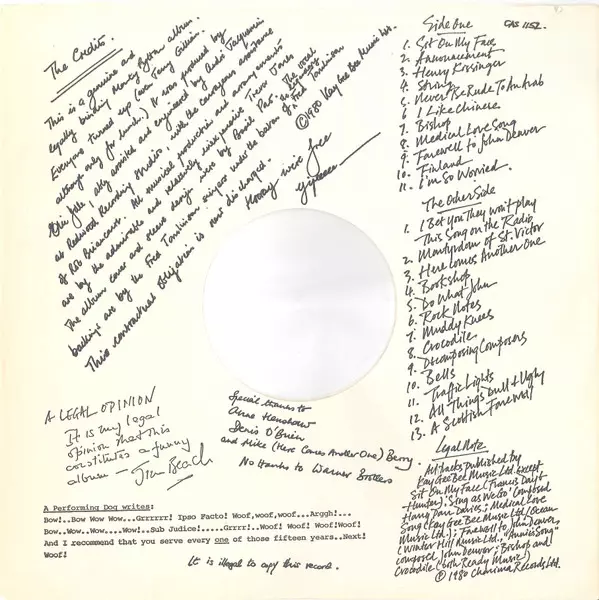 The Credits.
This is a genuine and
legally binding Monty Python album.
Everyone turned up (even Terry Gilliam
although only for lunch.) It was produced by
Eric Idle, ably assisted and engineered by Andre Jacquemin
at Redwood Recording Studios. with the courageous assistance
of Rob Briancourt. All musical production and arrangements
are by the admirable and relatively inexpensive Trevor Jones
The album cover and sleeve design were by Basil Pao. The vocal
backings are by the Fred Tomlinson singers under the baton of the legendary
Fred Tomlinson
This contractual obligation is now discharged.
Hooray we're free
yyeeee
©1980 Kay Gee Bee Music Ltd.
Side One
CAS 1152.
1. Sit On My Face
2. Announcement
3. Henry Kissinger
4. String
5. Never Be Rude To An Arab
6 I Like Chinese
7. Bishop
8. Medical Love Song
9. Farewell to John Denver
10. Finland
11. I'm So Worried.
The Other Side
1. I Bet You They won't play
This Song on the Radio
2. Martyrdom of St. Victor
3. Here Comes Another One
4. Bookshop
5. Do What John
6. Rock Notes
7. Muddy Knees
8. Crocodile
9. Decomposing Composers
10. Bells
11. Traffic Lights
12. All Things Dull + Ugly
13. A Scottish Farewell
Legal Note
All tracks published by
Kay Gee Bee Music Ltd. except
Sit On My Face (Francis Day &
Hunter). Sing as We Go' Composed
Harry Parr Davies; Medical Love
Song (Kay Gee Bee Music Ltd/Ocean
Music Ltd.); Farewell to John Denver,
(Winter Hill Music Ltd., "Annie's Song"
composed John Denver; Bishop and
Crocodile (both Ready Music)
© 1980 Charisma Records Ltd.
A LEGAL OPINION
It is my legal
opinion that this
constitutes a funny
album —
Jim Beach
Special thanks to
Anne Henshaw
Denis O'Brien
and Mike (Here Comes Another One) Berry.
No thanks to Warner Brothers
A Performing Dog writes:
Bow!..Bow Wow Wow...Grrrrrr! Ipso Facto! Woof,woof,woof...Arggh!...
Bow..Wow..Wow....Wow!..Sub Judice!.....Grrrr!..Woof! Woof! Woof!Woof!
And I recommend that you serve every one of those fifteen years..Next!
Woof!
It is illegal to copy this record.